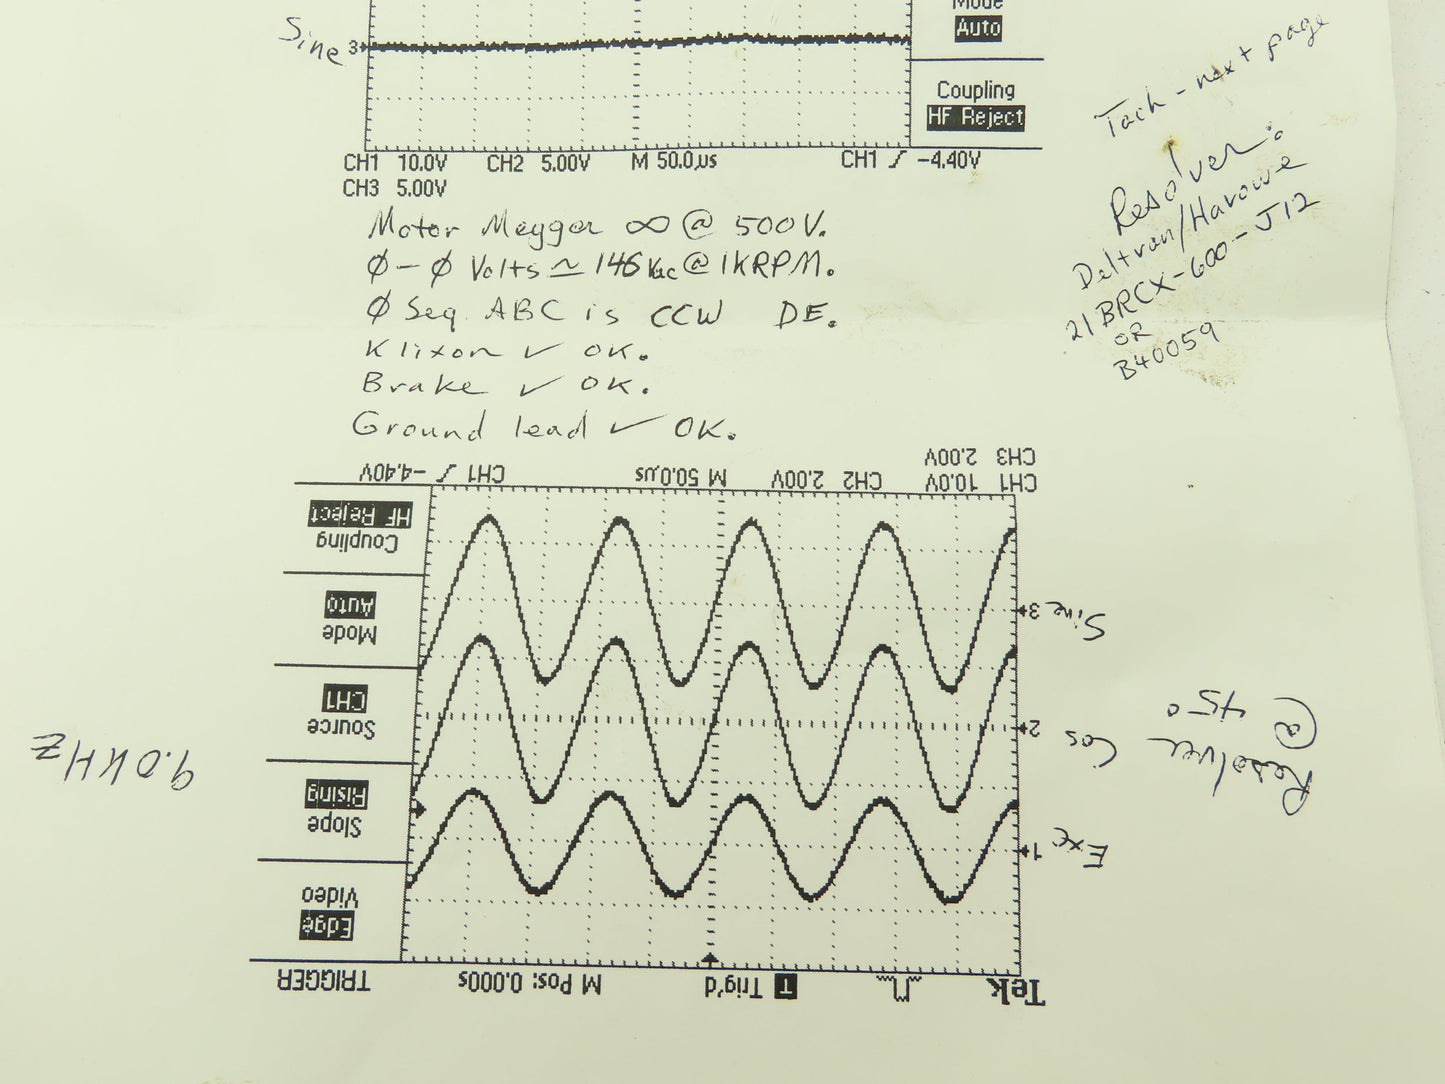 Mode
Auto
Coupling
HF Reject
Sine
3
CH1 10.0V CH2 5.00V M 50.0µs CH1 ∕ -4.40V
CH3 5.00V
Tach - next page
Resolver:
Deltran/Harowe
21BRCX-600-J12
OR
B40059
Motor Megger ∞ @ 500V.
Ø-Ø Volts ≃ 146 Vac @ 1KRPM.
Ø Seq. ABC is CCW DE.
Klixon ✓ OK.
Brake ✓ OK.
Ground lead ✓ OK.
Tek T Trig'd M Pos: 0.000s TRIGGER
Edge
Video
Slope
Rising
Source
CH1
Mode
Auto
Coupling
HF Reject
Exc 1
Cos 2
Sine 3
Resolver
@ 45°
9.0KHz
CH1 10.0V CH2 2.00V M 50.0µs CH1 ∕ -4.40V
CH3 2.00V